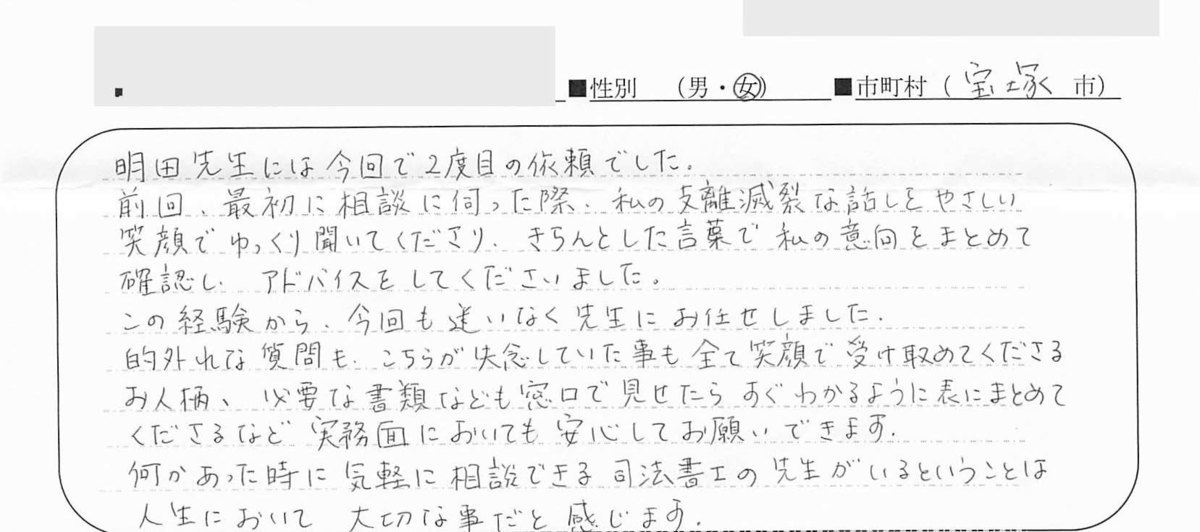 ■性別 (男・女) ■市町村 (宝塚 市)
明田先生には今回で2度目の依頼でした.
前回、最初に相談に伺った際、私の支離滅裂な話しをやさしい
笑顔でゆっくり聞いてくださり、きちんとした言葉で私の意向をまとめて
確認し、アドバイスをしてくださいました。
この経験から、今回も迷いなく先生にお任せしました.
的外れな質問も、こちらが失念していた事も全て笑顔で受け取めてくださる
お人柄、必要な書類なども窓口で見せたらすぐわかるように表にまとめて
くださるなど実務面においても安心してお願いできます.
何かあった時に気軽に相談できる司法書士の先生がいるということは
人生において大切な事だと感じます.